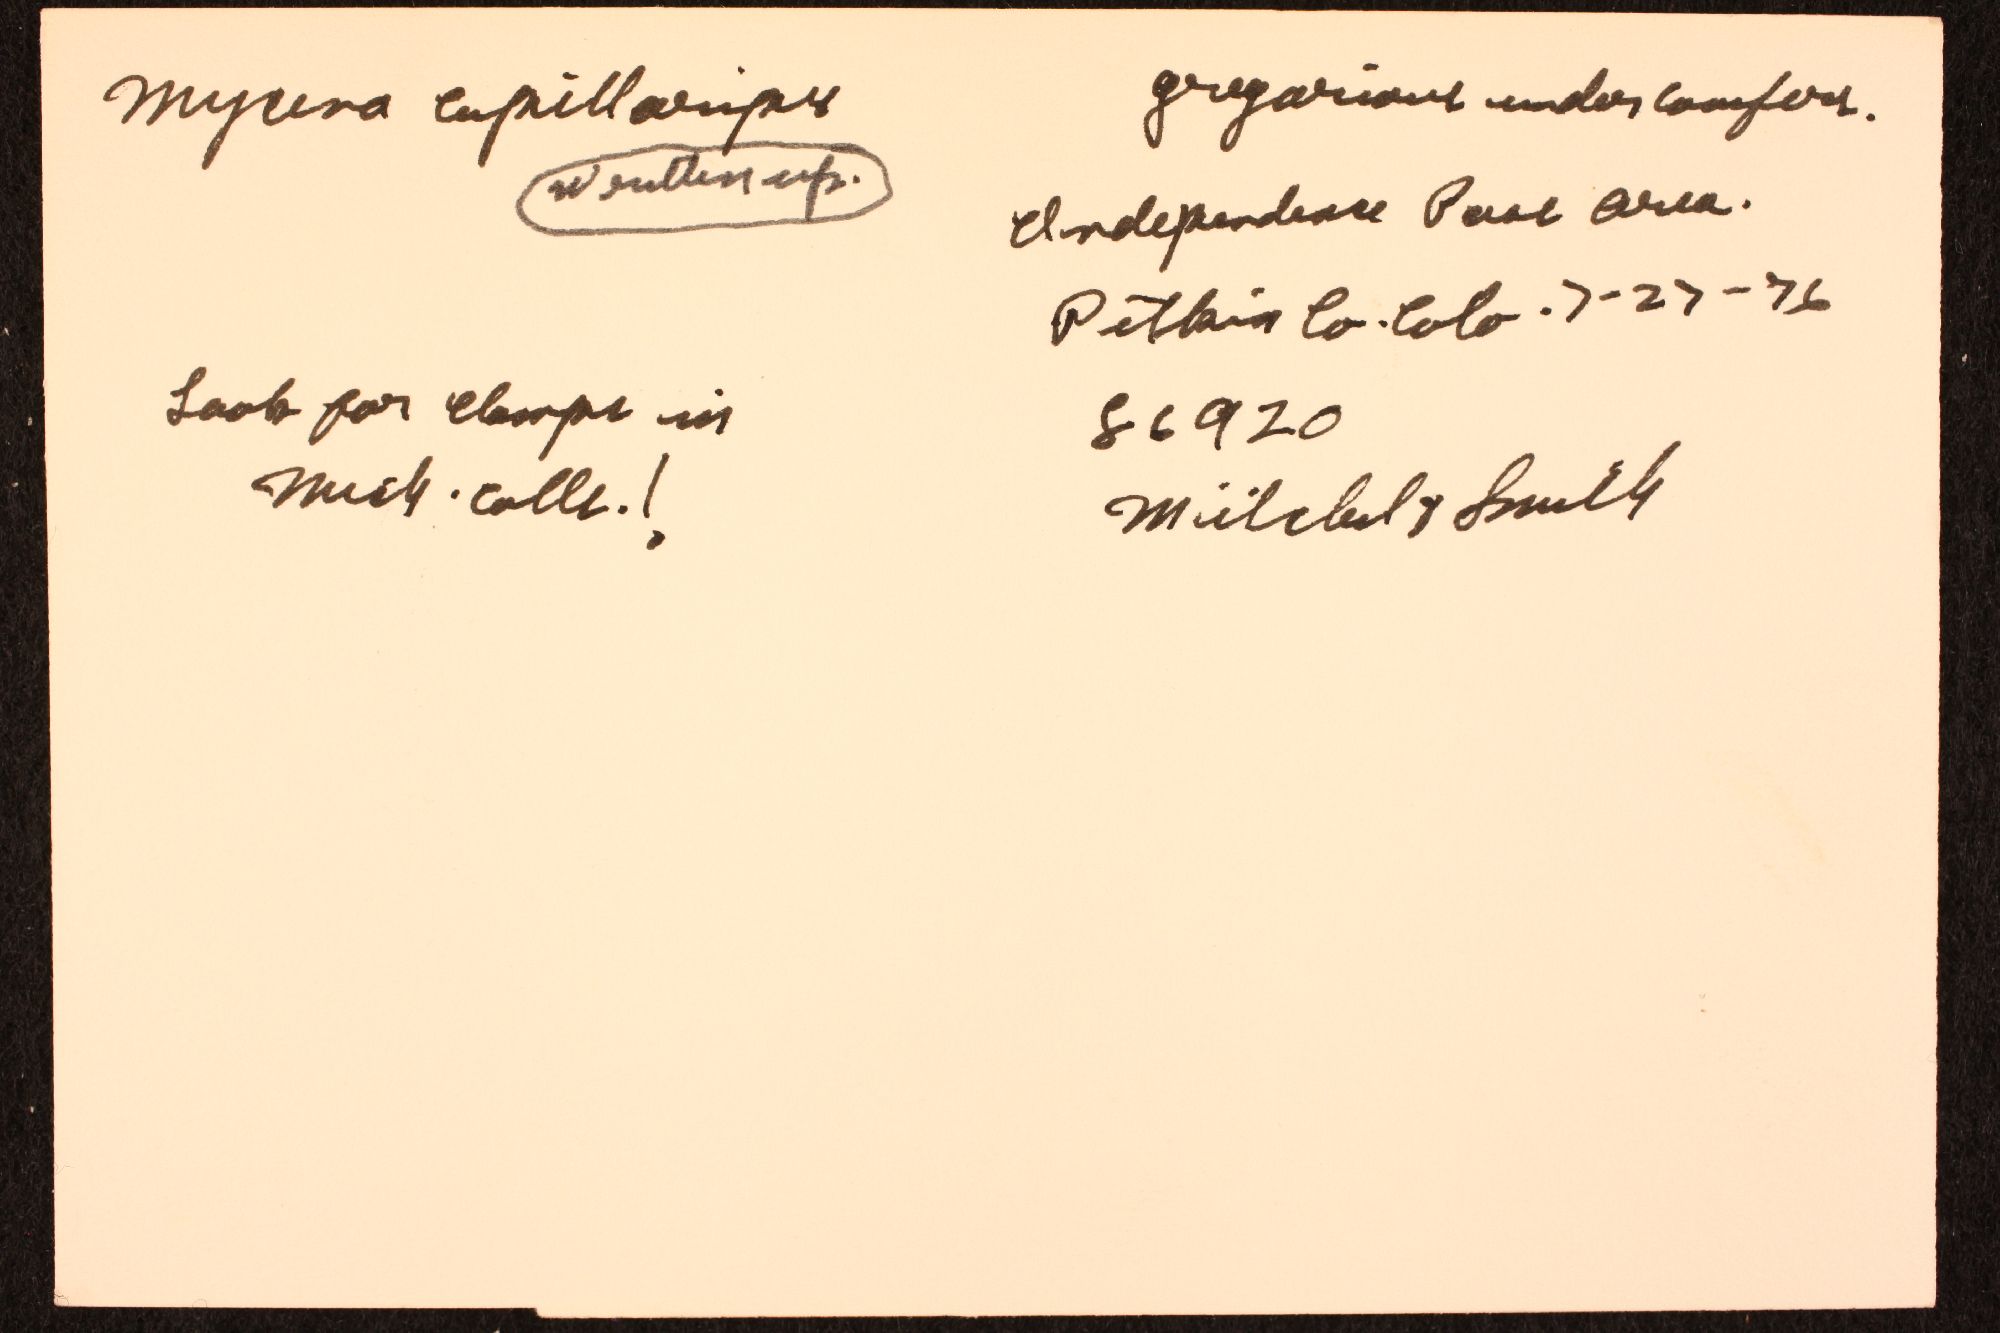 Mycena capillaripes
written up.
Look for clamps in
Mich. colls.!
gregarious under conifers.
Independence Pass area.
Pitkin Co. Colo. 7-27-76
86920
Mitchel & Smith